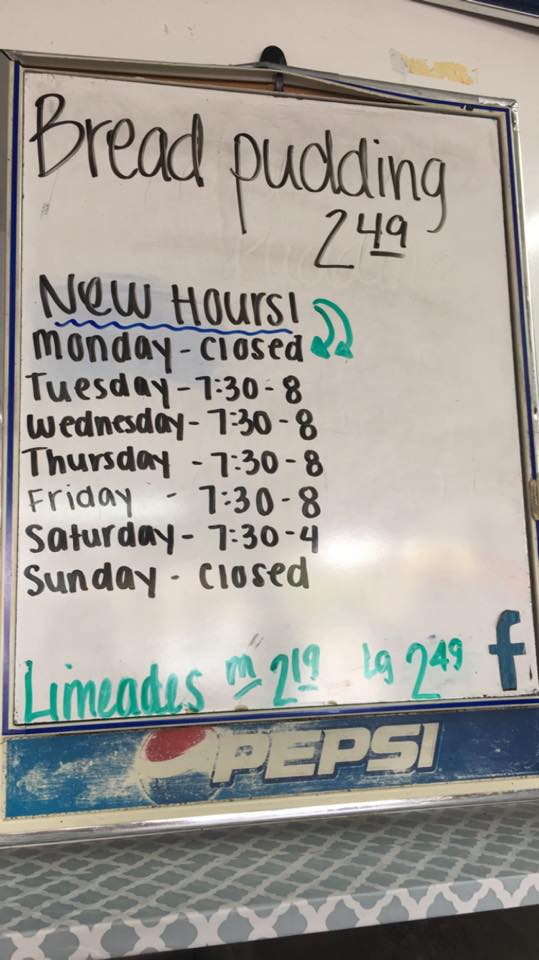 Bread pudding
2 49
New Hours!
Monday - closed
Tuesday - 7:30 - 8
Wednesday - 7:30 - 8
Thursday - 7:30 - 8
Friday - 7:30 - 8
Saturday - 7:30 - 4
Sunday - closed
Limeades m 2 19 Lg 2 49 f
PEPSI